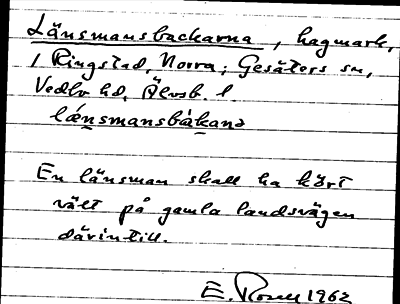 Länsmansbackarna, hagmark,
/ Ringstad, Norra; Gesäters sn,
Vedbo hd, Älvsb. l.
lænsmansbákanə
En länsman skall ha kört
vält på gamla landsvägen
därintill.
E. 1962